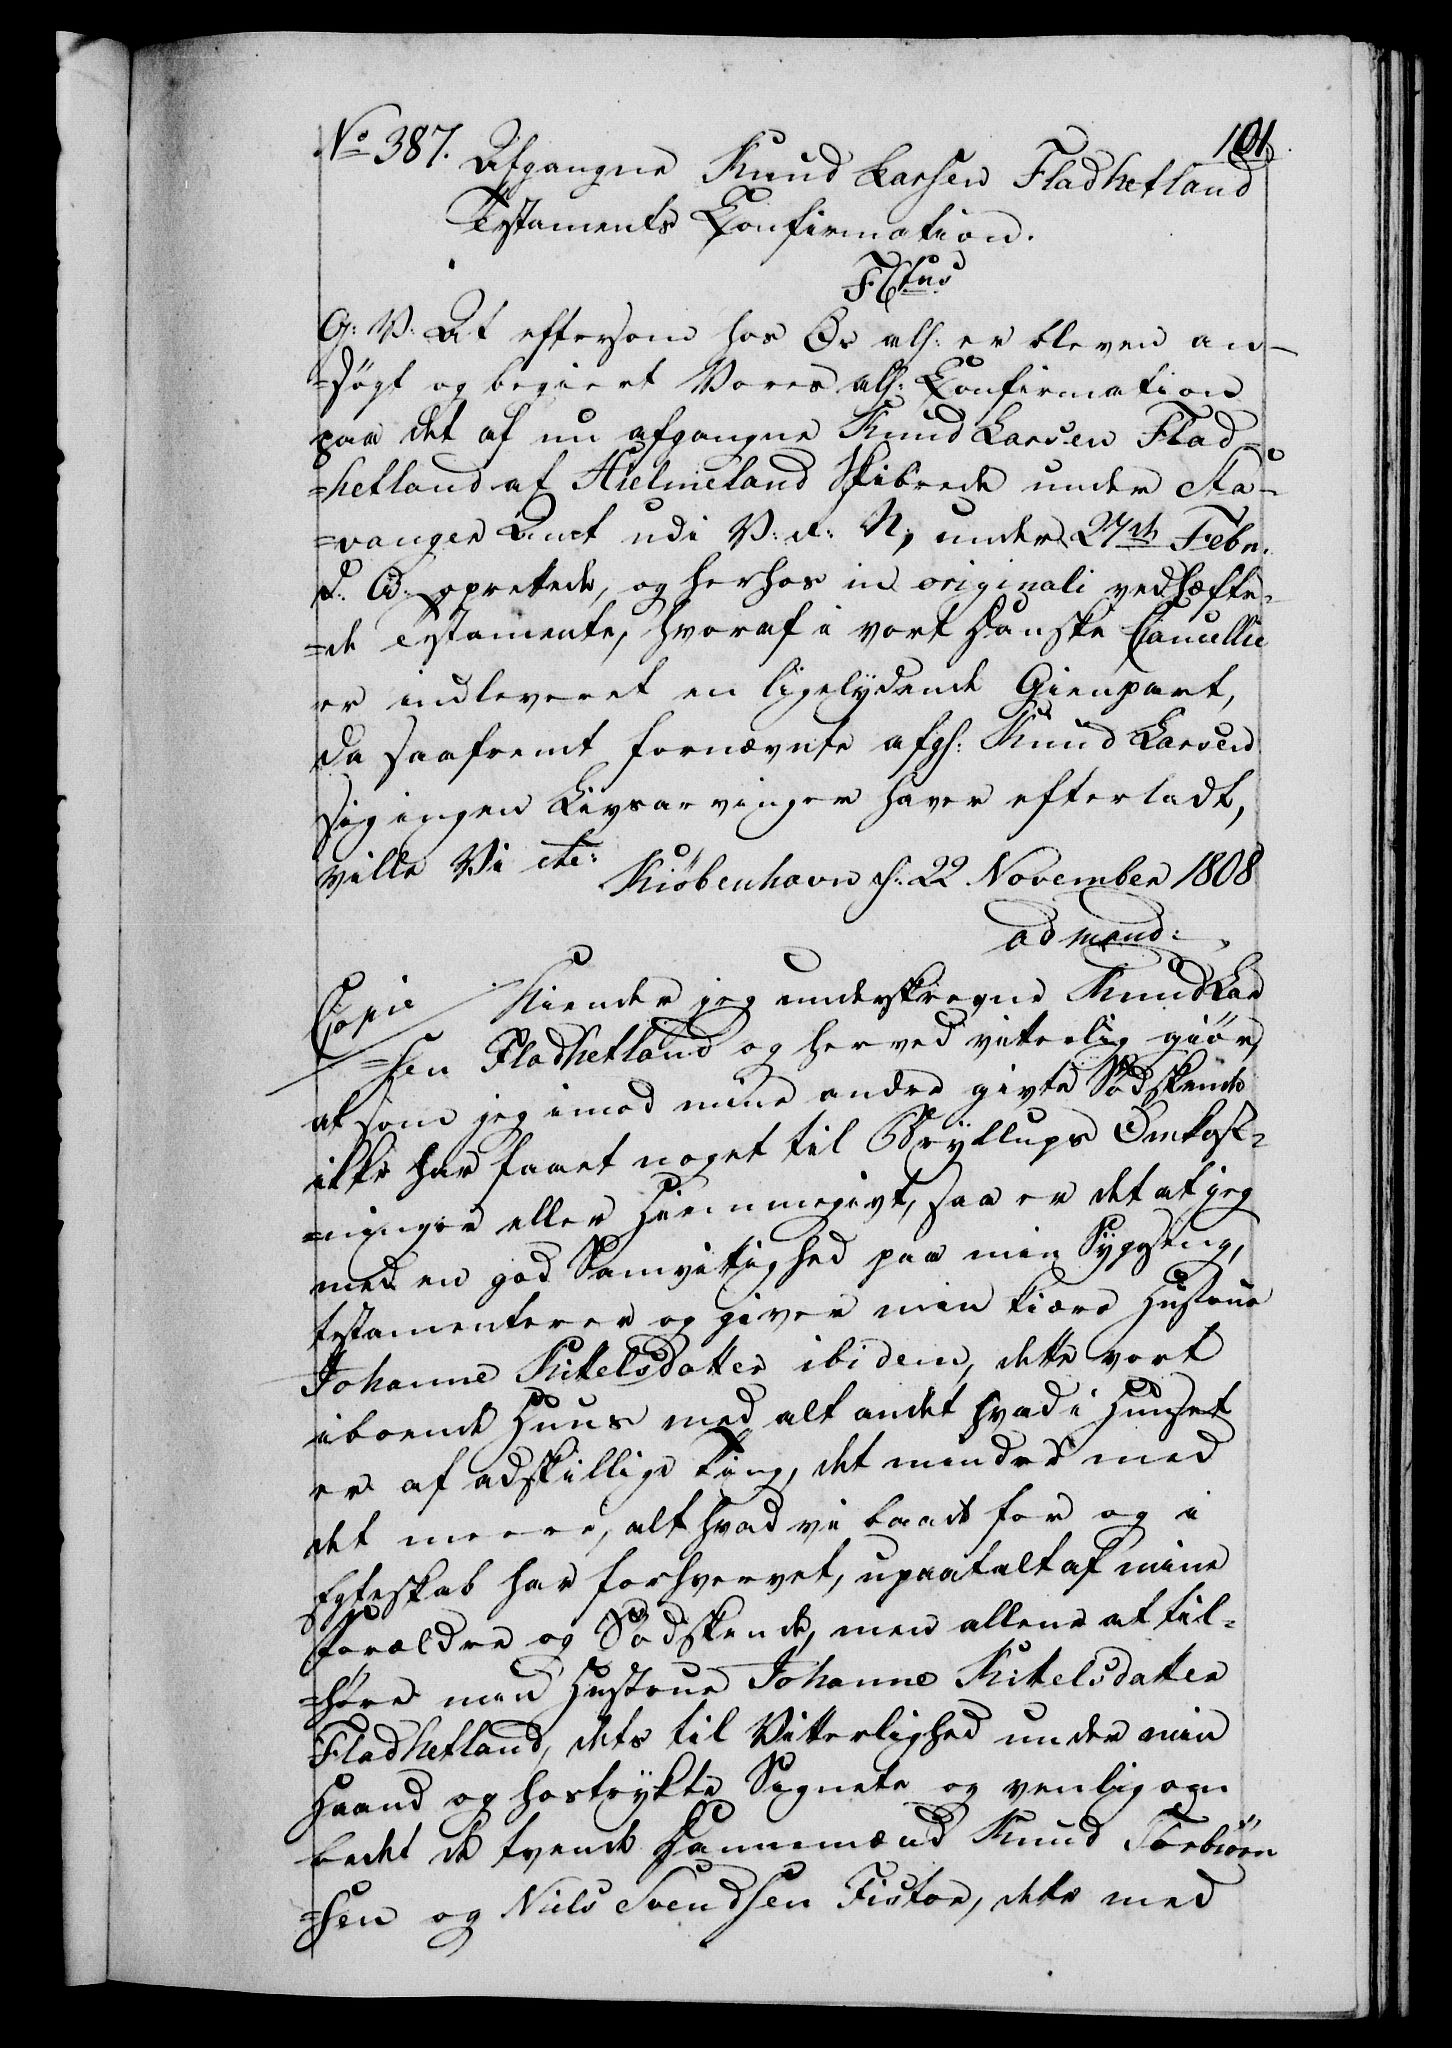 No 387. Afgangne Knud Larsen Fladhetland 101.
Testaments Confirmation.
F:Ctus
G: V: At eftersom hos Os als: er bleven an-
=søgt og begiert Vores als: Confirmation
paa det af nu afgangne Knud Larsen Flad=
=hetland af Hielmeland Skibrede under Sta-
=vanger Amt udi V: R: N, under 27de Febr:
d: A: oprettede, og herhos in originali vedhæfte-
=de Testamente, hvoraf i vort Danske Cancellie
er indleveret en ligelydende Gienpart,
da saafremt fornævnte afg: Knud Larsen
sig ingen Livsarvinger haver efterladt,
ville Vi etc:
Kiøbenhavn d: 22 November 1808
ad mand:
Copie / Kiender jeg underskrevne Knud Lar
=sen Fladhetland og herved vitterlig giør,
at som jeg imod mine andre givte Södskende
ikke har faaet noget til Bryllups Omkost-
=ninger eller Hiemmegivt, saa er det at jeg
med en god Samvittighed paa min Sygeseng,
testamenterer og giver min kiære Hustrue
Johanne Kittelsdatter ibidem, dette vort
iboende Huus med alt andet hvad i Huuset
er af adskillige Ting, det mindre med
det meere, alt hvad vi baade for og i
Egteskab har forhvervet, upaatalt af mine
Forældre og Södskende, men allene at til-
=høre min Hustrue Johanne Kittelsdatter
Fladhetland, dets til Vitterlighed under min
Haand og hostrykte Signete og venlig om
bedet de tvende Dannemænd Knud Torbiörn
=sen og Niels Svendsen Fistøe, dette med